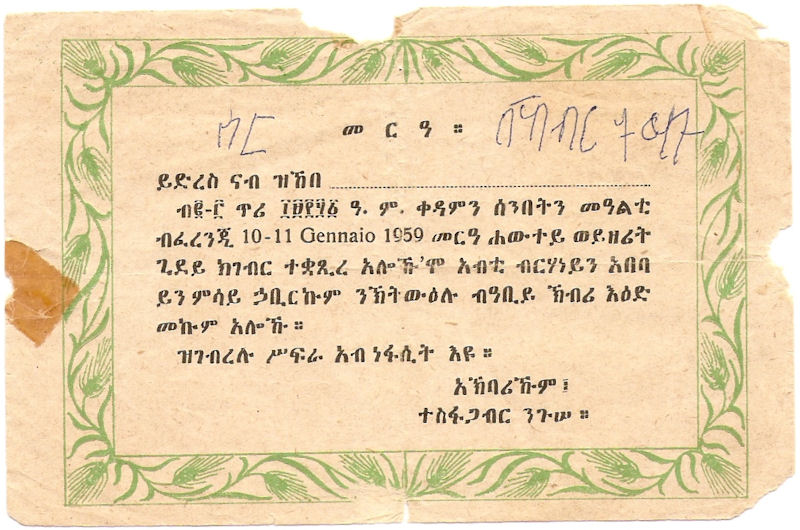 መርዓ ።
ይድረስ ናብ ዝኸበ
ብ፪-፫ ጥሪ ፲፱፻፶፩ ዓ. ም. ቀዳምን ሰንበትን መዓልቲ
ብፈረንጂ 10-11 Gennaio 1959 መርዓ ሐውተይ ወይዘሪት
ጊደይ ክገብር ተቋጺረ አሎኹ'ሞ አብቲ ብርሃነይን አበባ
ይን ምሳይ ኃቢርኩም ንኽትውዕሉ ብዓቢይ ኽብሪ እዕድ
መኩም አሎኹ ።
ዝገብረሉ ሥፍራ አብ ነፋሲት እዩ ።
አኽባሪኹም ፤
ተስፋጋብር ንጉሠ ።